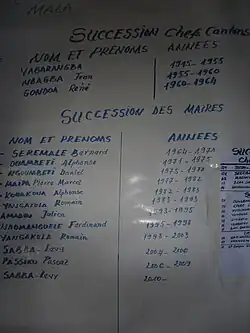 MALA
SUCCESSION Chefs Cantons
NOM ET PRÉNOMS ANNÉES
YABARANGBA 1915-1955
NGAGBA Jean 1955-1960
GONDOA René 1960-1964
SUCCESSION DES MAIRES
NOM ET PRENOMS ANNEES
SEREMALE Bernard 1964-1970
OUAMBETI Alphonse 1971-1975
NGOUMBETI Daniel 1975-1977
MAIPA Pierre Marcel 1977-1982
KOBAKONA Alphonse 1982-1983
YANGAKOLA Romain 1983-1993
AMADOU Julien 1993-1995
NDOMANDELE Ferdinand 1995-1998
YANGAKOLA Romain 1998-2003
SABBA-Levy 2004-2006
PASSIKO Pascal 2006-2009
SABBA-Levy 2010-